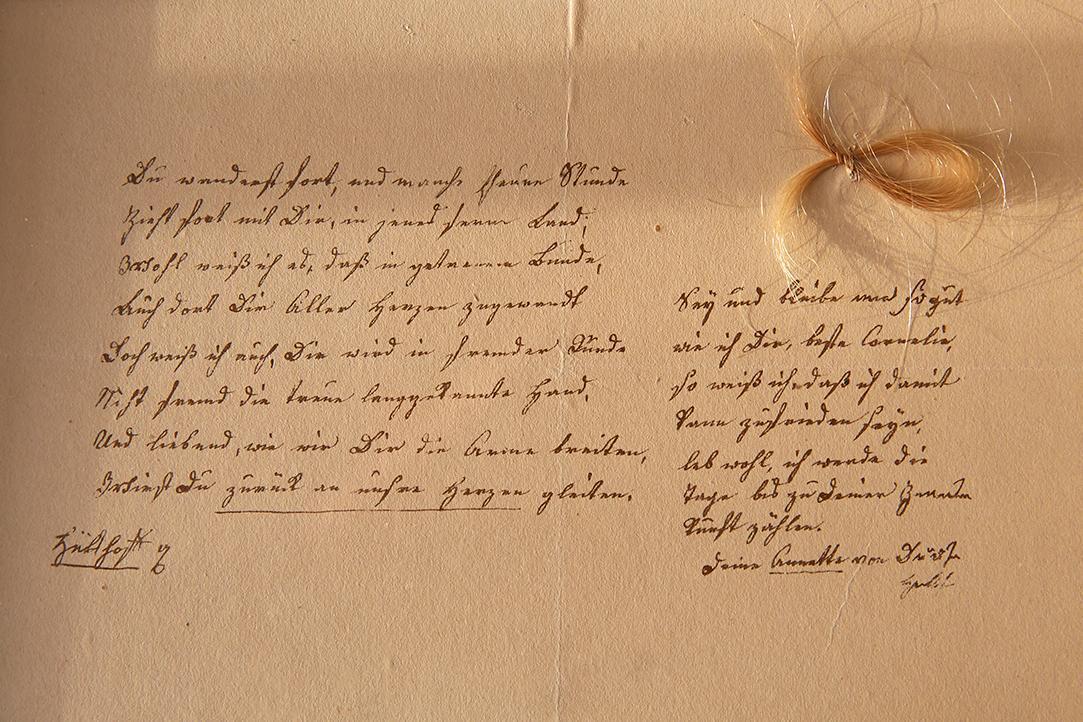 Du wanderst fort, und manche theure Stunde
Zieht fort mit Dir, in jenes ferne Land,
Wohl weiß ich es, daß in getreuem Bunde,
Auch dort Dir Aller Herzen zugewandt
Doch weiß ich auch, Dir wird in fremder Runde
Nicht fremd die treue langgekannte Hand,
Und liebend, wie wir Dir die Arme breiten,
Wirst Du zurück an unsre Herzen gleiten.
Hülshoff
Sey und bleibe mir so gut
wie ich Dir, beste Cornelie,
so weiß ich daß ich damit
kann zufrieden seyn,
leb wohl, ich werde die
Tage bis zu Deiner
kunft zählen.
Deine Annette von Droste